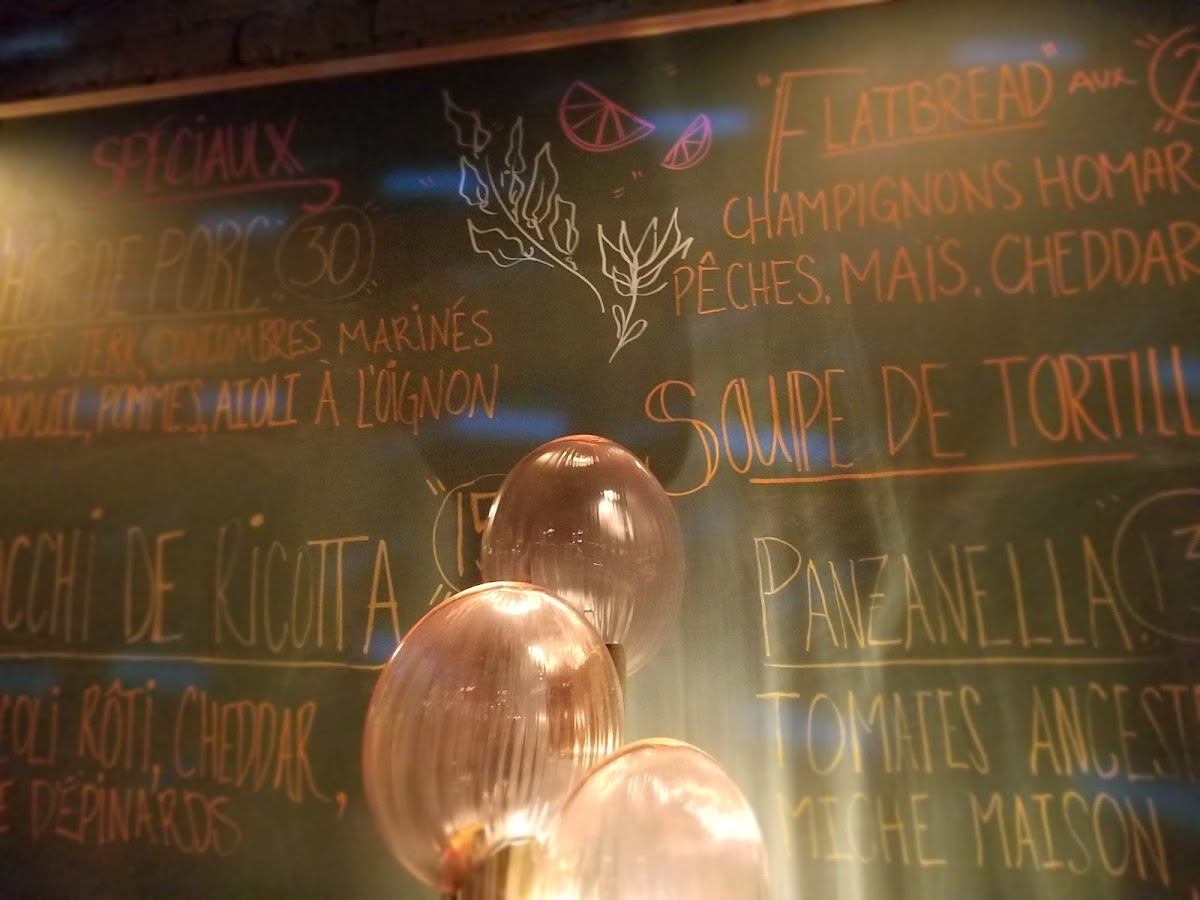 SPÉCIAUX
DE PORC 30
JERK, CONCOMBRES MARINÉS
POMMES, AIOLI À L'OIGNON
DE RICOTTA
RÔTI, CHEDDAR,
D'ÉPINARDS
"FLATBREAD" AUX
CHAMPIGNONS HOMAR
PÊCHES, MAÏS, CHEDDAR
SOUPE DE TORTILL
PANZANELLA
TOMATES ANCEST
MICHE MAISON